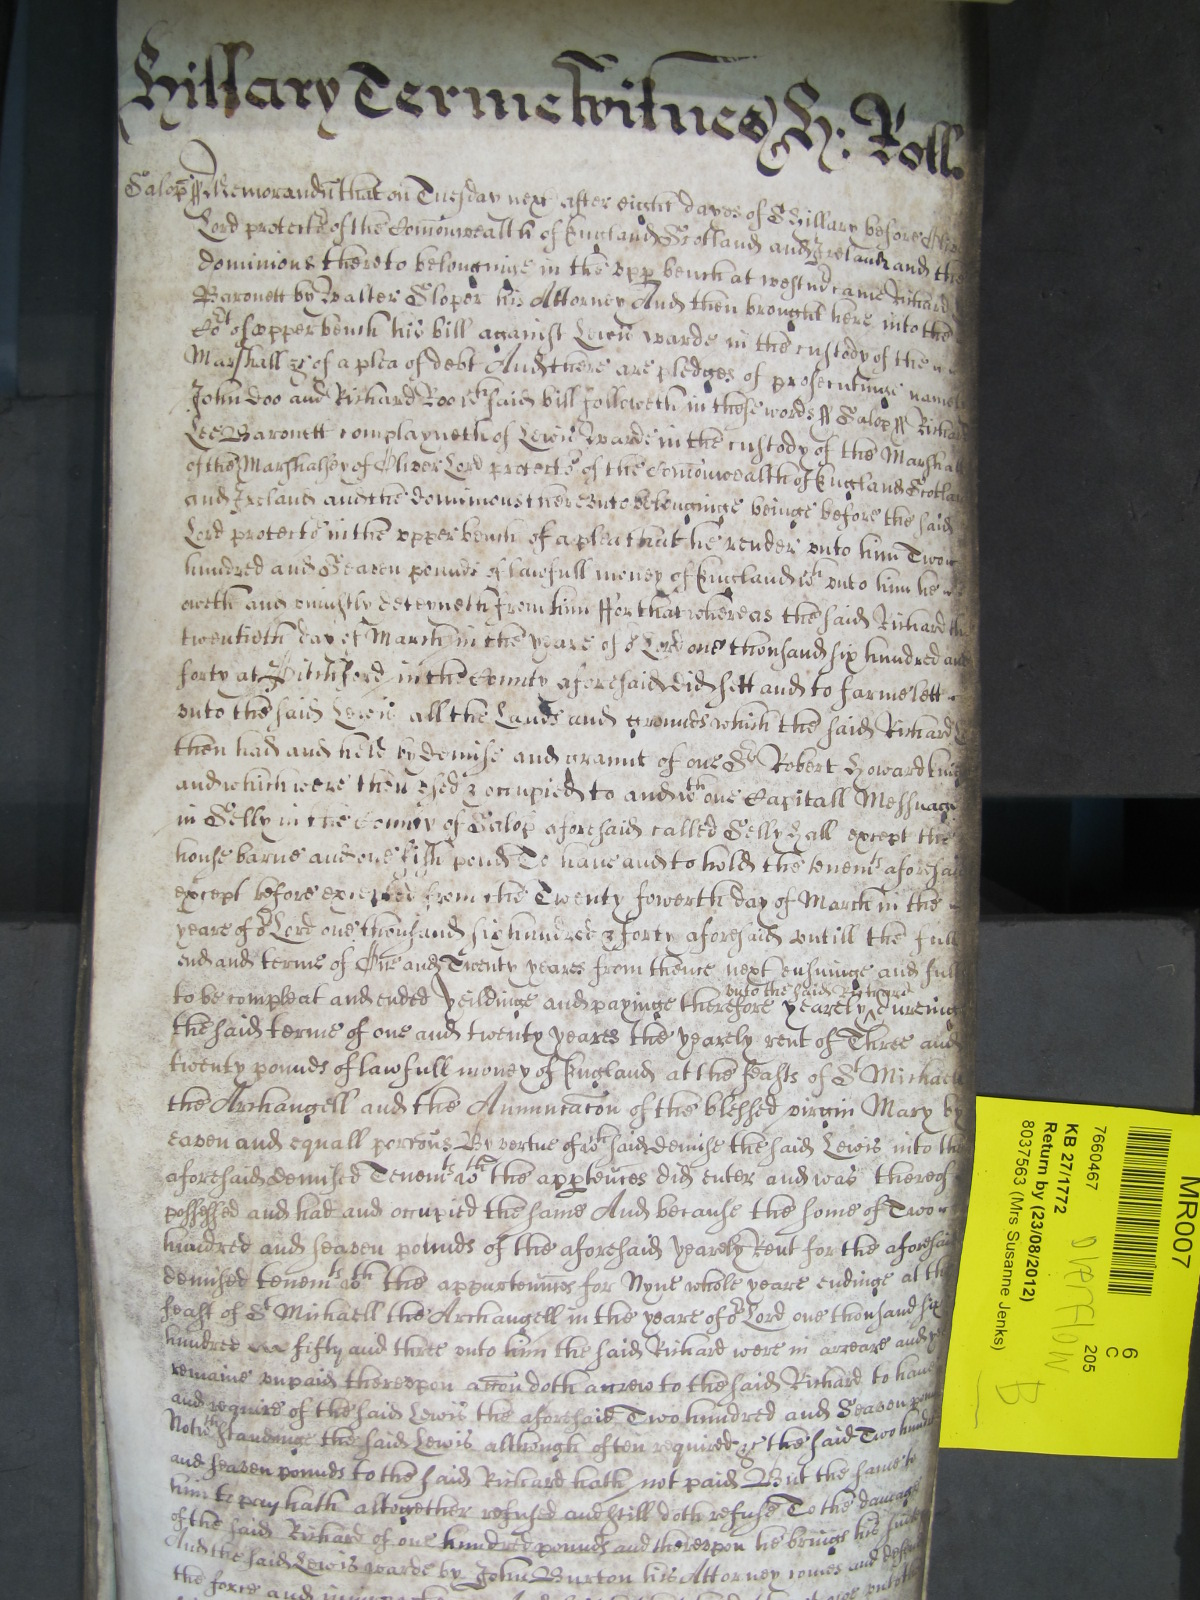 Hillary Terme Witnes H: Roll
Salop ss Memorand that on Tuesday next after eight dayes of St Hillary before
Lord protector of the Comonwealth of England Scotland and Ireland and the
dominions thereto belonginge in the vpp bench at westm came Richard
Baronett by Walter Sloper his Attorney And then brought here into the
Cort of vpper bench his bill against Lewis warde in the custody of the
Marshall &c of a plea of debt And there are pledges of prosecutinge namely
John Doo and Richard Roo wch said bill followeth in these words ss Salop ss Richard
Lee Baronett complayneth of Lewis Warde in the custody of the Marshall
of the Marshalsey of Oliver Lord protector of the Comonwealth of England Scotland
and Ireland and the dominions therevnto belonginge beinge before the said
Lord protector in the vpper bench of a plea that he render vnto him Two
hundred and Seaven pounds of lawfull money of England wch vnto him he
oweth and vniustly deteyneth from him ffor that whereas the said Richard the
twentieth day of March in the yeare of or Lord one thousand six hundred and
forty at Pitchford in the County aforesaid did sett and to farme lett
vnto the said Lewis all the Lands and grounds which the said Richard
then had and held by demise and graunt of one Sr Robert Howard knight
and which were then vsed & occupied to and wth one Capitall Messuage
in Selly in the County of Salop aforesaid called Selly Hall except the
house barne and one fish pond To have and to hold the tenemts aforesaid
except before excepted from the Twenty fowerth day of March in the
yeare of or Lord one thousand six hundred & forty aforesaid vntill the full
end and terme of One and Twenty yeares from thence next ensuinge and fully
vnto the said Richard
to be compleat and ended yeildinge and payinge therefore yearely dureinge
the said terme of one and twenty yeares the yearely rent of Three and
twenty pounds of lawfull money of England at the feasts of St Michaell
the Archangell and the Annunciacon of the blessed virgin Mary by
eaven and equall porcons By vertue of wch said demise the said Lewis into the
aforesaid demised Tenemts wth the appertences did enter and was thereof
possessed and had and occupied the same And because the some of Two
hundred and seaven pounds of the aforesaid yearely Rent for the aforesaid
demised tenemts wth the appurtennces for Nyne whole yeare endinge at the
feast of St Michaell the Archangell in the yeare of or Lord one thousand six
hundred fifty and three vnto him the said Richard were in arreare and
remaine vnpaid therevpon accon doth accrew to the said Richard to have
and require of the said Lewis the aforesaid Two hundred and Seaven pounds
Notwthstandinge the said Lewis although often required &c the said Two hundred
and seaven pounds to the said Richard hath not paid But the same to
him to pay hath altogether refused and still doth refuse To the damage
of the said Richard of one hundred pounds and therevpon he brings his suite
And the said Lewis warde by John Burton his Attorney comes and defends
the force and
MR007
7660467
6
C
205
KB 27/1772
Return by (23/08/2012)
8037563 (Mrs Susanne Jenks)
OVERFLOW
B